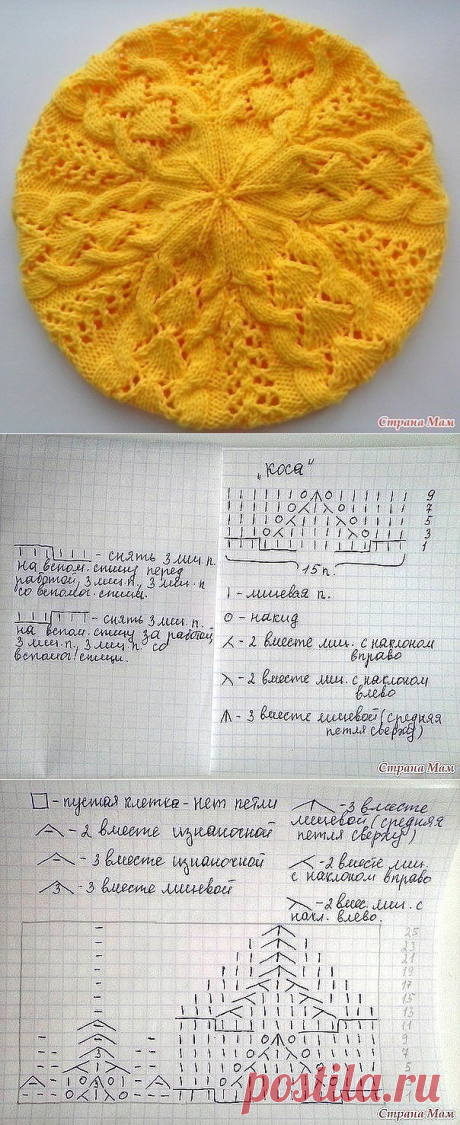 Страна Мам
"Коса"
9
7
5
3
1
15 п.
- снять 3 лиц. п.
на вспом. спицу перед
работой, 3 лиц. п., 3 лиц. п
со вспомог. спицы.
- снять 3 лиц. п.
на вспом. спицу за работой,
3 лиц. п., 3 лиц. п. со
вспомог. спицы.
I - лицевая п.
O - накид
- 2 вместе лиц. с наклоном
вправо
- 2 вместе лиц. с наклоном
влево
- 3 вместе лицевой (средняя
петля сверху)
Страна Мам
- пустая клетка - нет петли
- 2 вместе изнаночной
- 3 вместе изнаночной
3 - 3 вместе лицевой
- 3 вместе
лицевой (средняя
петля сверху)
- 2 вместе лиц.
с наклоном вправо
- 2 вмес. лиц. с
накл. влево.
25
23
21
19
17
15
13
11
9
7
5
postila.ru
Страна Мам